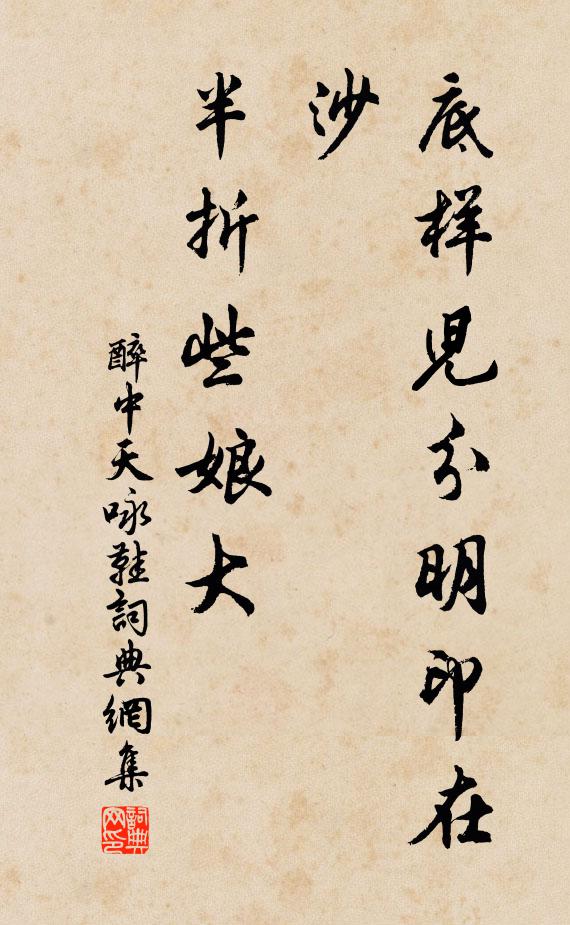 底样兒分明印在
沙
半折些娘大
醉中天咏鞋詞典網集
詞典网印